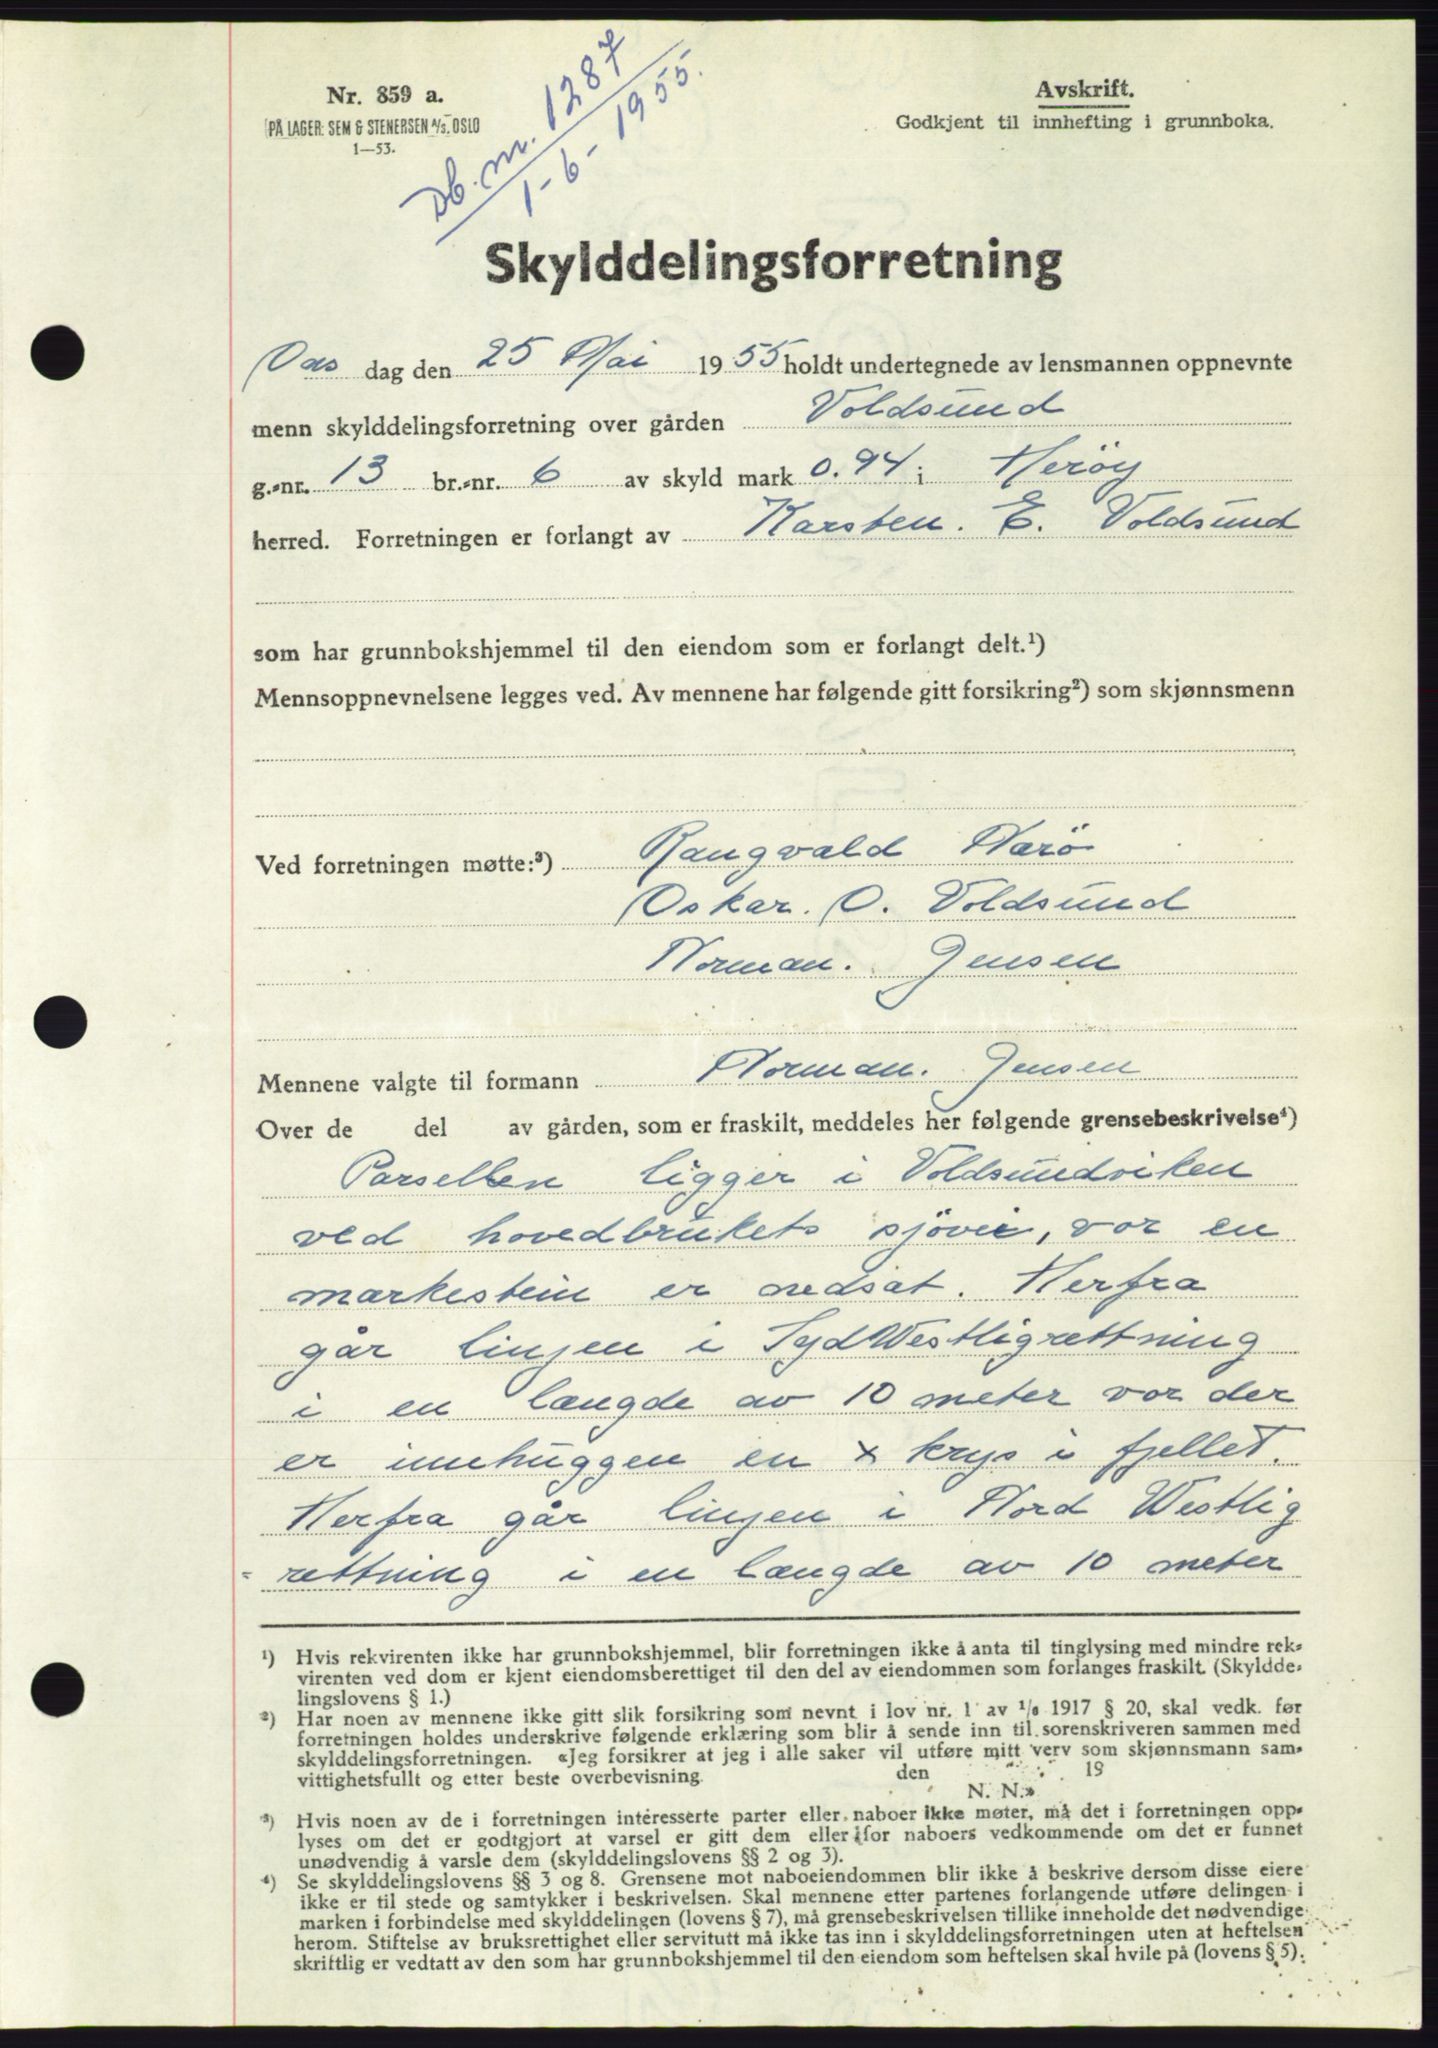 Nr. 859 a.
PÅ LAGER: SEM & STENERSEN A/S. OSLO
1—53.
Db. nr. 1287
1-6-1955.
Avskrift.
Godkjent til innhefting i grunnboka.
Skylddelingsforretning
Ons dag den 25 Mai 1955 holdt undertegnede av lensmannen oppnevnte
menn skylddelingsforretning over gården Voldsund
g.-nr. 13 br.-nr. 6 av skyld mark 0.94 i Herøy
herred. Forretningen er forlangt av Karsten. E. Voldsund
som har grunnbokshjemmel til den eiendom som er forlangt delt.¹)
Mennsoppnevnelsene legges ved. Av mennene har følgende gitt forsikring²) som skjønnsmenn
Ved forretningen møtte:³) Rangvald Nærö
Oskar. O. Voldsund
Norman. Jensen
Mennene valgte til formann Norman. Jensen
Over de del av gården, som er fraskilt, meddeles her følgende grensebeskrivelse⁴)
Parsellen ligger i Voldsundviken
ved hovedbrukets sjövei, vor en
markestein er nedsat. Herfra
går linjen i SydWestligrettning
i en længde av 10 meter vor der
er innhuggen en x krys i fjellet.
Herfra går linjen i Nord Westlig
- rettning i en længde av 10 meter
¹) Hvis rekvirenten ikke har grunnbokshjemmel, blir forretningen ikke å anta til tinglysing med mindre rek-
virenten ved dom er kjent eiendomsberettiget til den del av eiendommen som forlanges fraskilt. (Skyldde-
lingslovens § 1.)
²) Har noen av mennene ikke gitt slik forsikring som nevnt i lov nr. 1 av ¹/₈ 1917 § 20, skal vedk. før
forretningen holdes underskrive følgende erklæring som blir å sende inn til sorenskriveren sammen med
skylddelingsforretningen. «Jeg forsikrer at jeg i alle saker vil utføre mitt verv som skjønnsmann sam-
vittighetsfullt og etter beste overbevisning. den 19
N. N.»
³) Hvis noen av de i forretningen interesserte parter eller naboer ikke møter, må det i forretningen opp-
lyses om det er godtgjort at varsel er gitt dem eller for naboers vedkommende om det er funnet
unødvendig å varsle dem (skylddelingslovens §§ 2 og 3).
⁴) Se skylddelingslovens §§ 3 og 8. Grensene mot naboeiendommen blir ikke å beskrive dersom disse eiere
ikke er til stede og samtykker i beskrivelsen. Skal mennene etter partenes forlangende utføre delingen i
marken i forbindelse med skylddelingen (lovens § 7), må grensebeskrivelsen tillike inneholde det nødvendige
herom. Stiftelse av bruksrettighet eller servitutt må ikke tas inn i skylddelingsforretningen uten at heftelsen
skriftlig er vedtatt av den som har grunnbokshjemmel til den eiendom som heftelsen skal hvile på (lovens § 5).